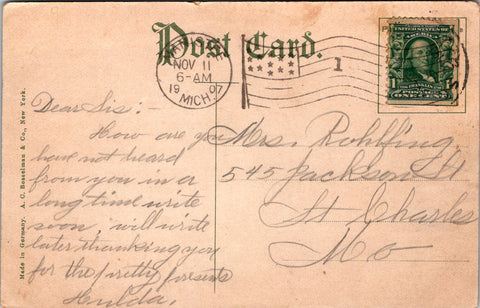 Post Card.
NOV 11
6-AM
1907
MICH.
1
UNITED STATES OF AMERICA
FRANKLIN
POSTAGE
ONE CENT
Made in Germany. A. C. Bosselman & Co., New York.
Dear Sis:
How are you
have not heard
from you in a
long time write
soon, will write
later thanking you
for the pretty presents
Hulda.
Mrs. Rohlfing
545 Jackson St
St Charles
Mo